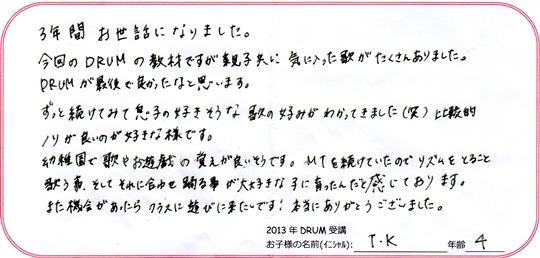 3年間 お世話になりました。
今回のDRUMの教材ですが親子共に 気に入った歌がたくさんありました。
DRUMが最後で良かったなと思います。
ずっと続けてみて息子の好きそうな 歌の好みがわかってきました(笑) 比較的
ノリが良いのが好きな様です。
幼稚園で歌やお遊戯の覚えが良いそうです。MTを続けていたのでリズムをとること
歌う事、そしてそれに合わせ踊る事が大好きな子に育ったんだと感じております。
また機会があったらクラスに遊びに来たいです!本当にありがとうございました。
2013年DRUM受講
お子様の名前(イニシャル): T.K 年齢 4